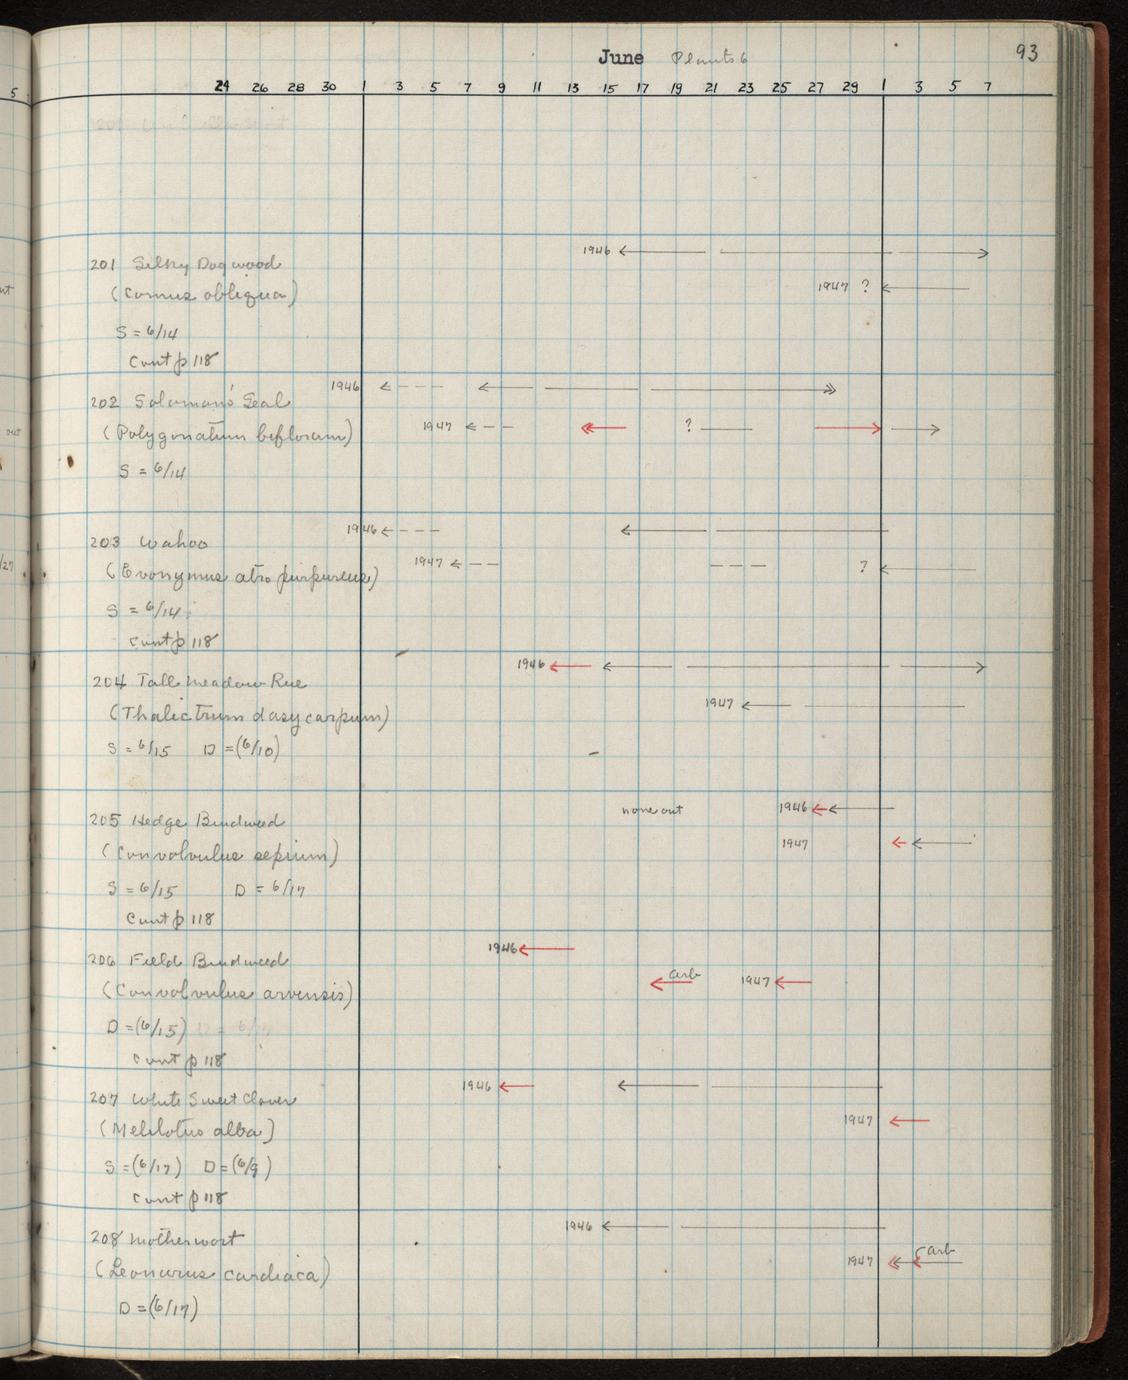 June Plants 6 93
5 24 26 28 30 1 3 5 7 9 11 13 15 17 19 21 23 25 27 29 1 3 5 7
1946
201 Silky Dogwood
1947 ?
(Cornus obliqua)
S = 6/14
Cont p 118
1946
202 Solomon's Seal
1947 ?
(Polygonatum biflorum)
out
S = 6/14
1946
203 Wahoo
1947 ?
/27
(Evonymus atro purpureus)
S = 6/14
Cont p 118
1946
204 Tall Meadow Rue
1947
(Thalictrum dasycarpum)
S = 6/15 D = (6/10)
none out 1946
205 Hedge Bindweed
1947
(Convolvulus sepium)
S = 6/15 D = 6/17
Cont p 118
1946
206 Field Bindweed
arb 1947
(Convolvulus arvensis)
D = (6/15)
Cont p 118
1946
207 White Sweet Clover
1947
(Melilotus alba)
S = (6/17) D = (6/9)
Cont p 118
1946
208 Motherwort
1947 arb
(Leonurus cardiaca)
D = (6/17)